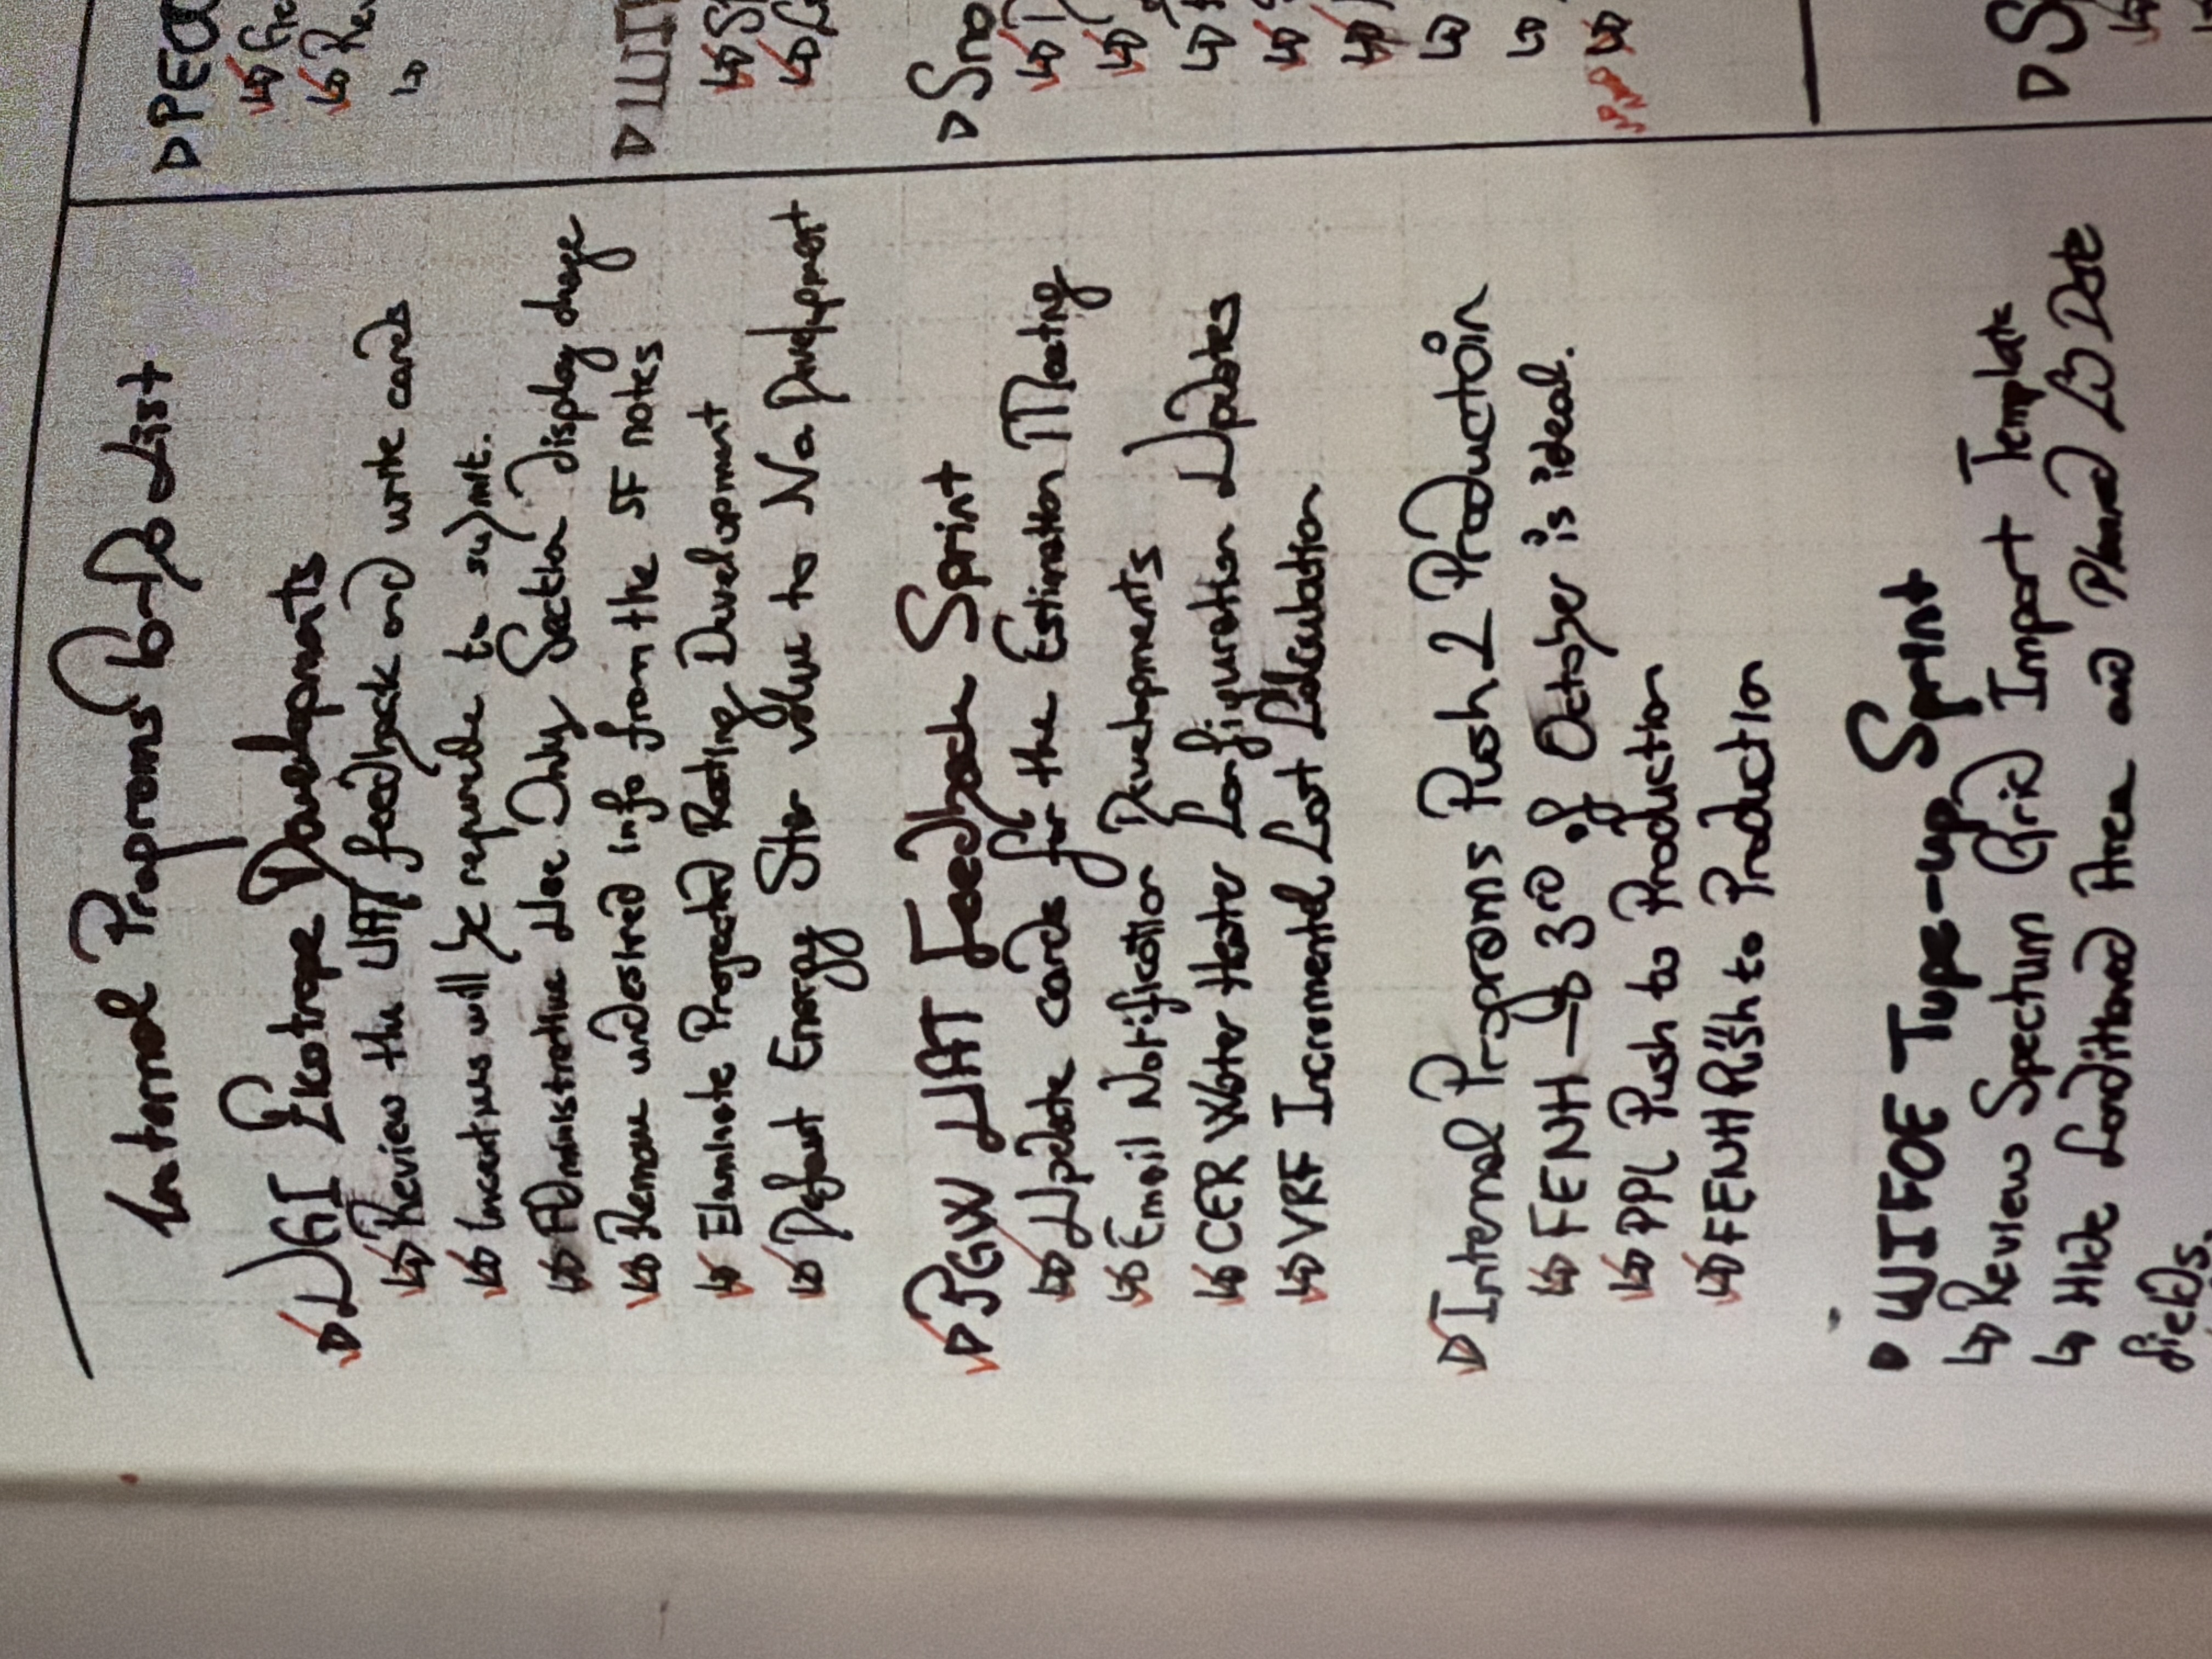 Internal Programs To-Do List
UGI Ekotrope Developments
Review the UAT feedback and write cards
Incentives will be requride to submit.
Administrative Use Only Section Display change
Remove undesired info from the SF notes
Elaminate Projected Rating Development
Default Energy Star value to No Development
PGW UAT Feedback Sprint
Update cards for the Estimation Meeting
Email Notification Developments
CER Water Heater Configuration Updates
VRF Incremental Cost Calculation
Internal Programs Push 2 Production
FENH 3rd of October is ideal.
PPL Push to Production
FENH Push to Production
WIFOE Type-up Sprint
Review Spectum Grid Import Template
Hide Conditioned Area and Planned CO Date
fields.